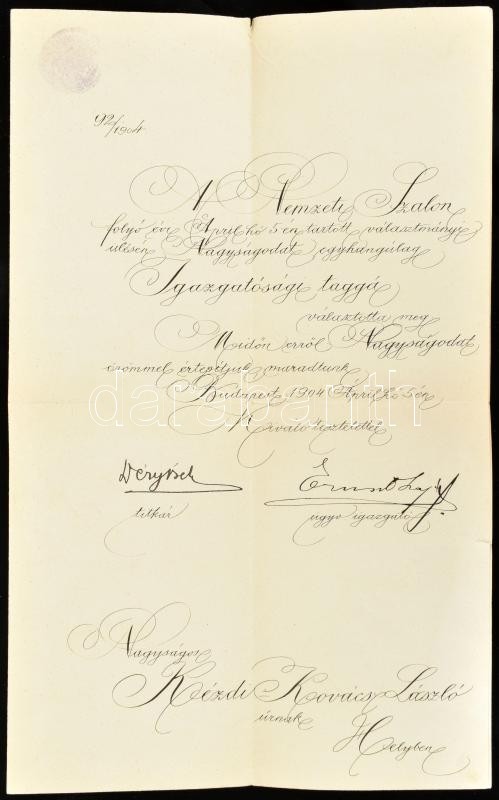 92/1904
A Nemzeti Szalon
folyó évi April hó 5 én tartott választmányi
ülésén Nagyságodat egyhangúlag
Igazgatósági taggá
választotta meg
Midőn erről Nagyságodat
örömmel értesítjük maradtunk
Budapest 1904 April hó 5én
Kiváló tisztelettel
titkár
Ernst Lajos
ügyv igazgató
Nagyságos
Kézdi Kovács László
úrnak
Helyben
darabanth